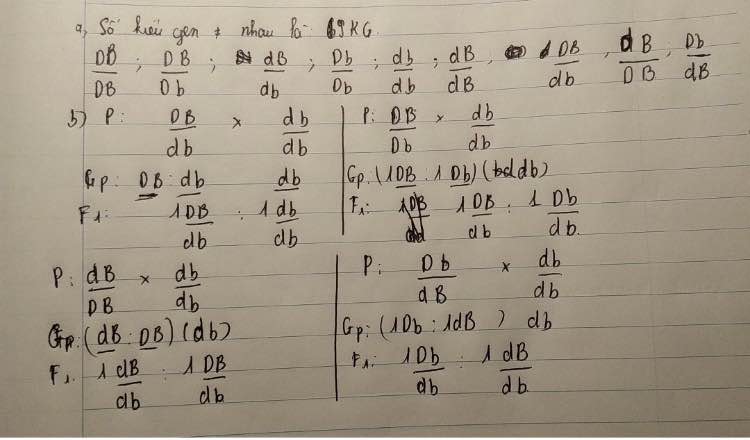 a, Số kiểu gen ≠ nhau là: 9 KG.
DB/DB ; DB/Db ; dB/db ; Db/Db ; db/db ; dB/dB , DB/db , dB/DB , Db/dB
b) P: DB/db × db/db
Gp: DB : db db
F1: 1 DB/db : 1 db/db
P: DB/Db × db/db
Gp: (1DB : 1 Db) ( db)
F1: 1 DB/db : 1 Db/db.
P: dB/DB × db/db
Gp: (dB : DB) (db)
F1: 1 dB/db : 1 DB/db
P: Db/dB × db/db
Gp: (1Db : 1dB ) db
F1: 1Db/db : 1 dB/db.